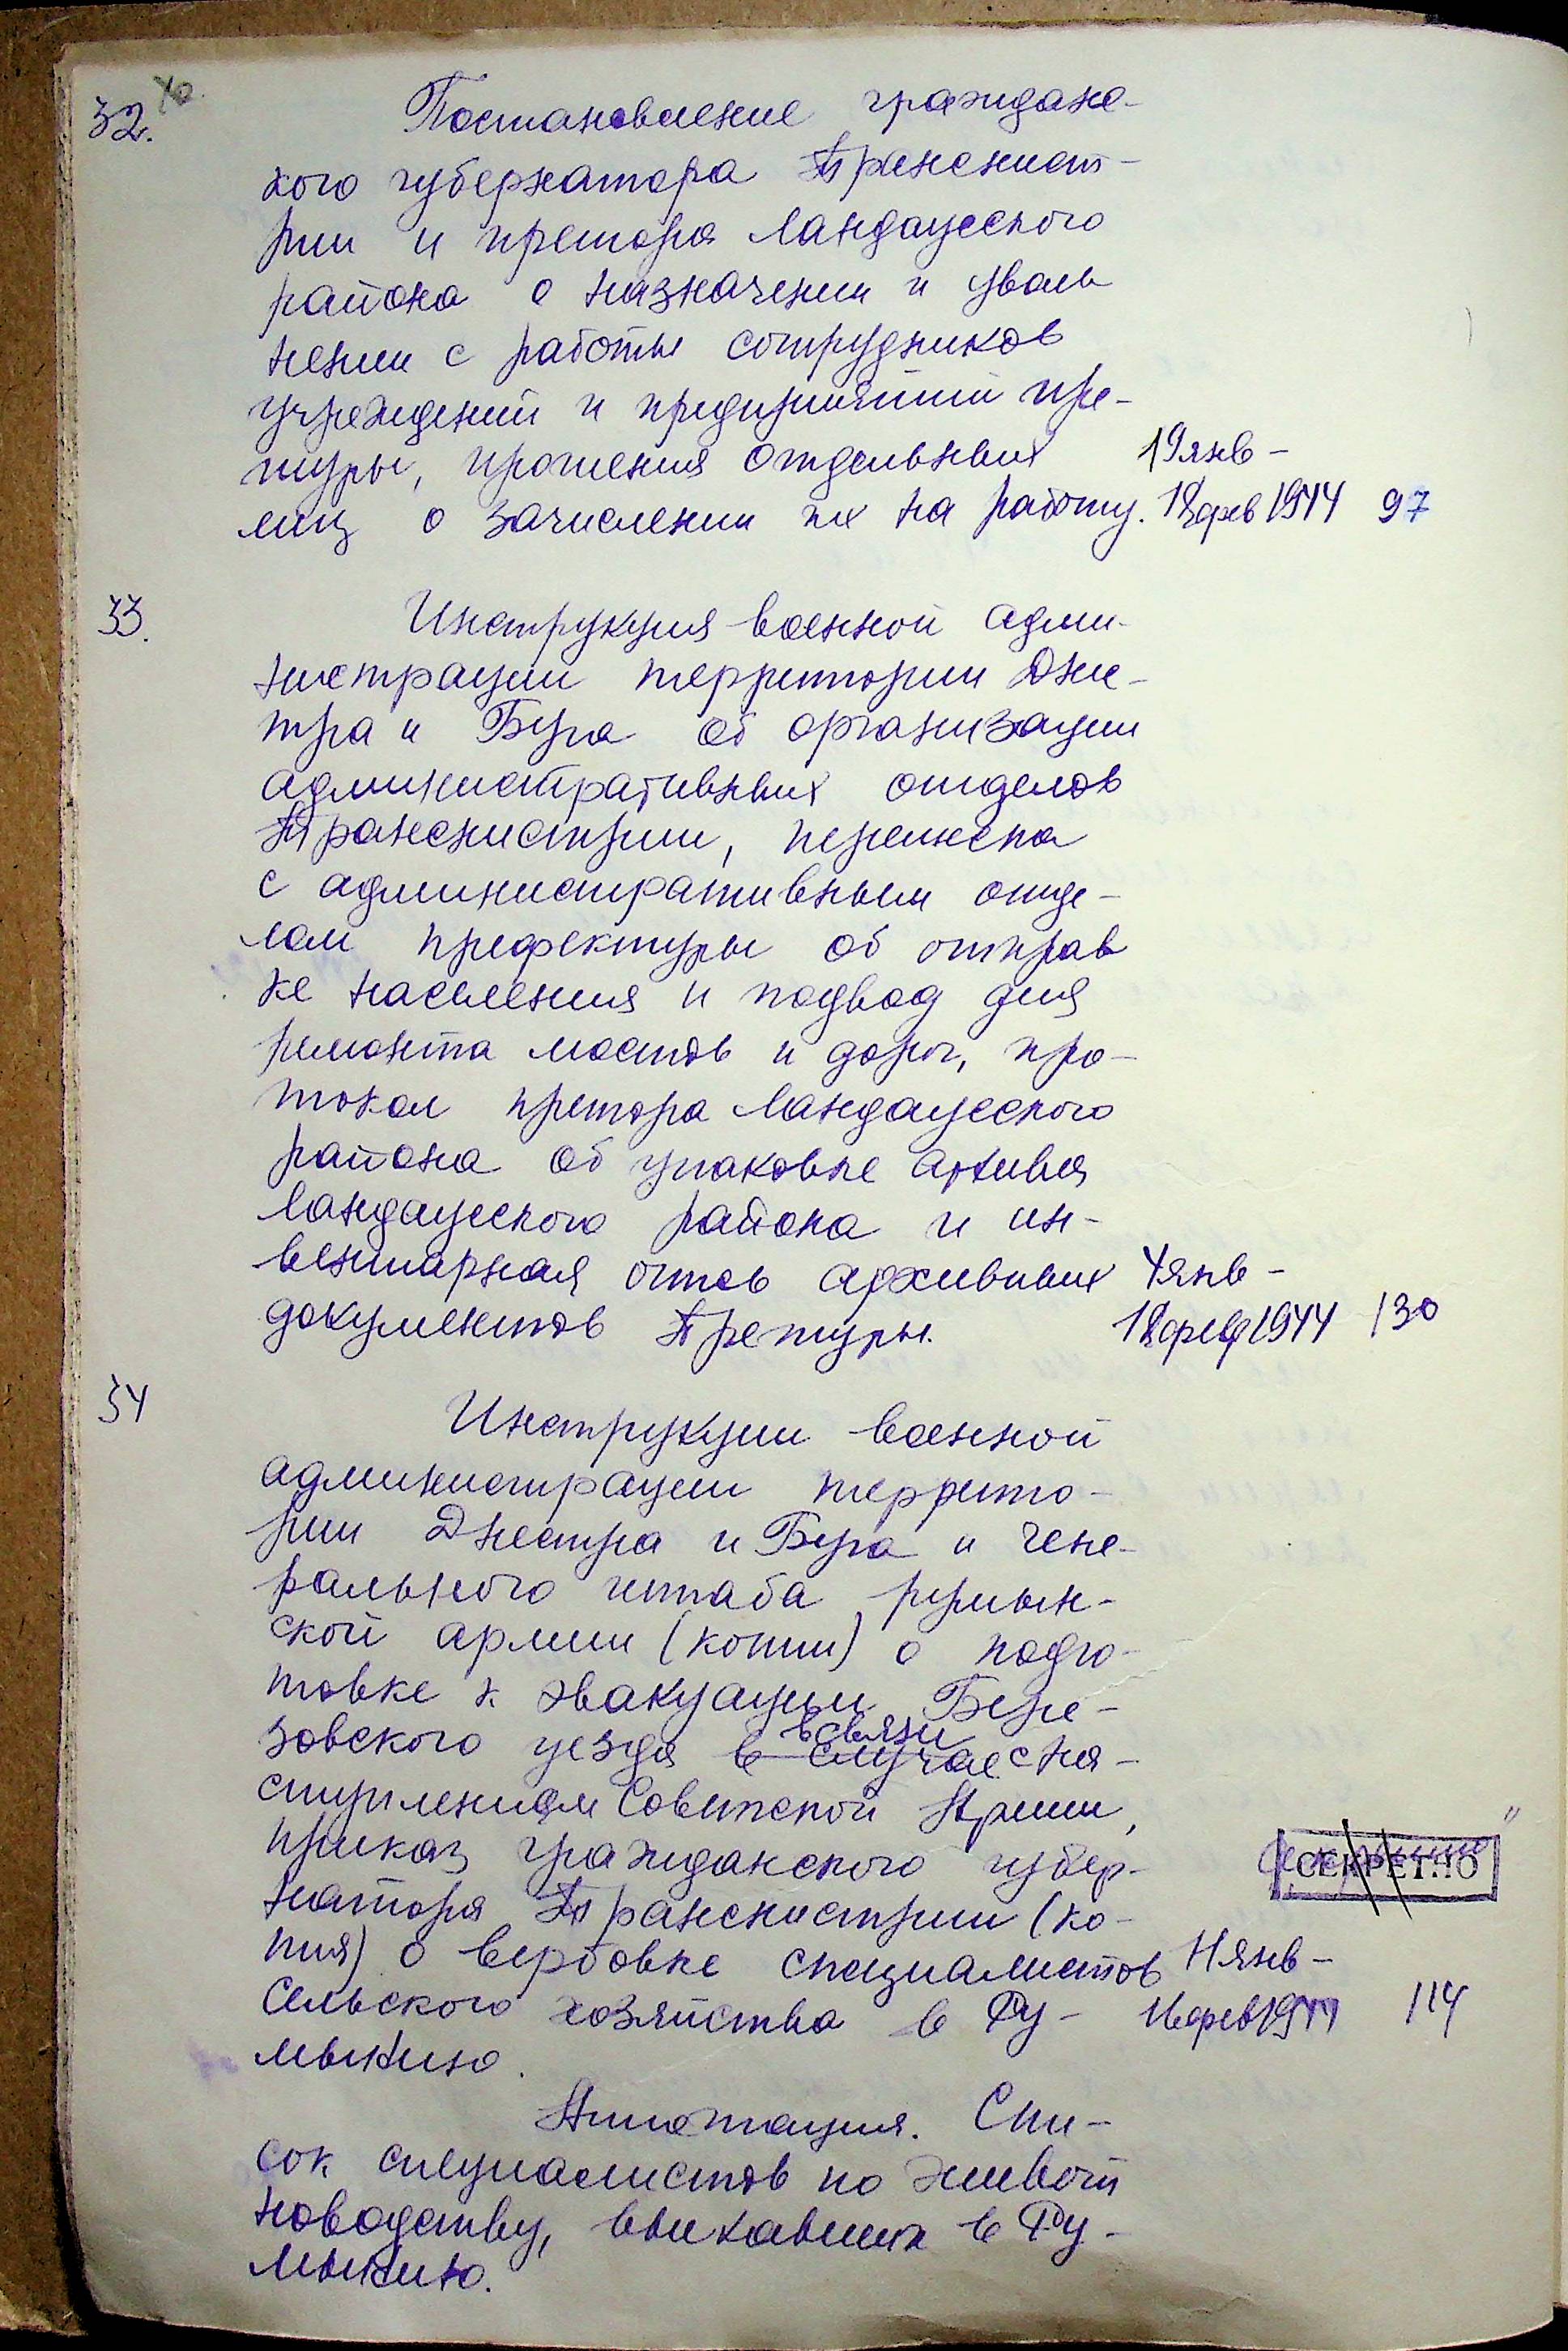 32.
Постановление гражданс-
кого губернатора Транснист-
рии и претора Ландауского
района о назначении и уволь
нении с работы сотрудников
учреждений и предприятий пре-
туры, прошения отдельных 19 янв -
лиц о зачислении их на работу. 18 фев 1944 97
33.
Инструкция военной адми-
нистрации территории Дне-
тра и Буга об организации
административных отделов
Транснистрии, переписка
с административным отде-
лом префектуры об отправ
ке населения и подвод для
ремонта мостов и дорог, про-
токол претора Ландауского
района об упаковке архива
Ландауского района и ин-
вентарная опись архивных 4 янв -
документов Претуры. 18 фев 1944 130
34
Инструкции военной
администрации террито-
рии Днестра и Буга и гене-
рального штаба румын-
ской армии (копии) о подго-
товке к эвакуации Бере-
зовского уезда в случае в связи с на-
ступлением Советской Армии,
приказ гражданского губер-
натора Транснистрии (ко-
СЕКРЕТНО
пия) о вербовке специалистов 11 янв -
сельского хозяйства в Ру- 16 фев 1944 114
мынию.
Аннотация. Спи-
сок специалистов по живот
новодству, выехавших в Ру-
мынию.